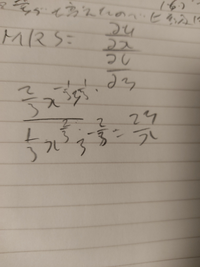 MRS = ∂u/∂x / ∂u/∂y
2/3 x^{-1/3} y^{1/3} / 1/3 x^{2/3} y^{-2/3} = 2y/x